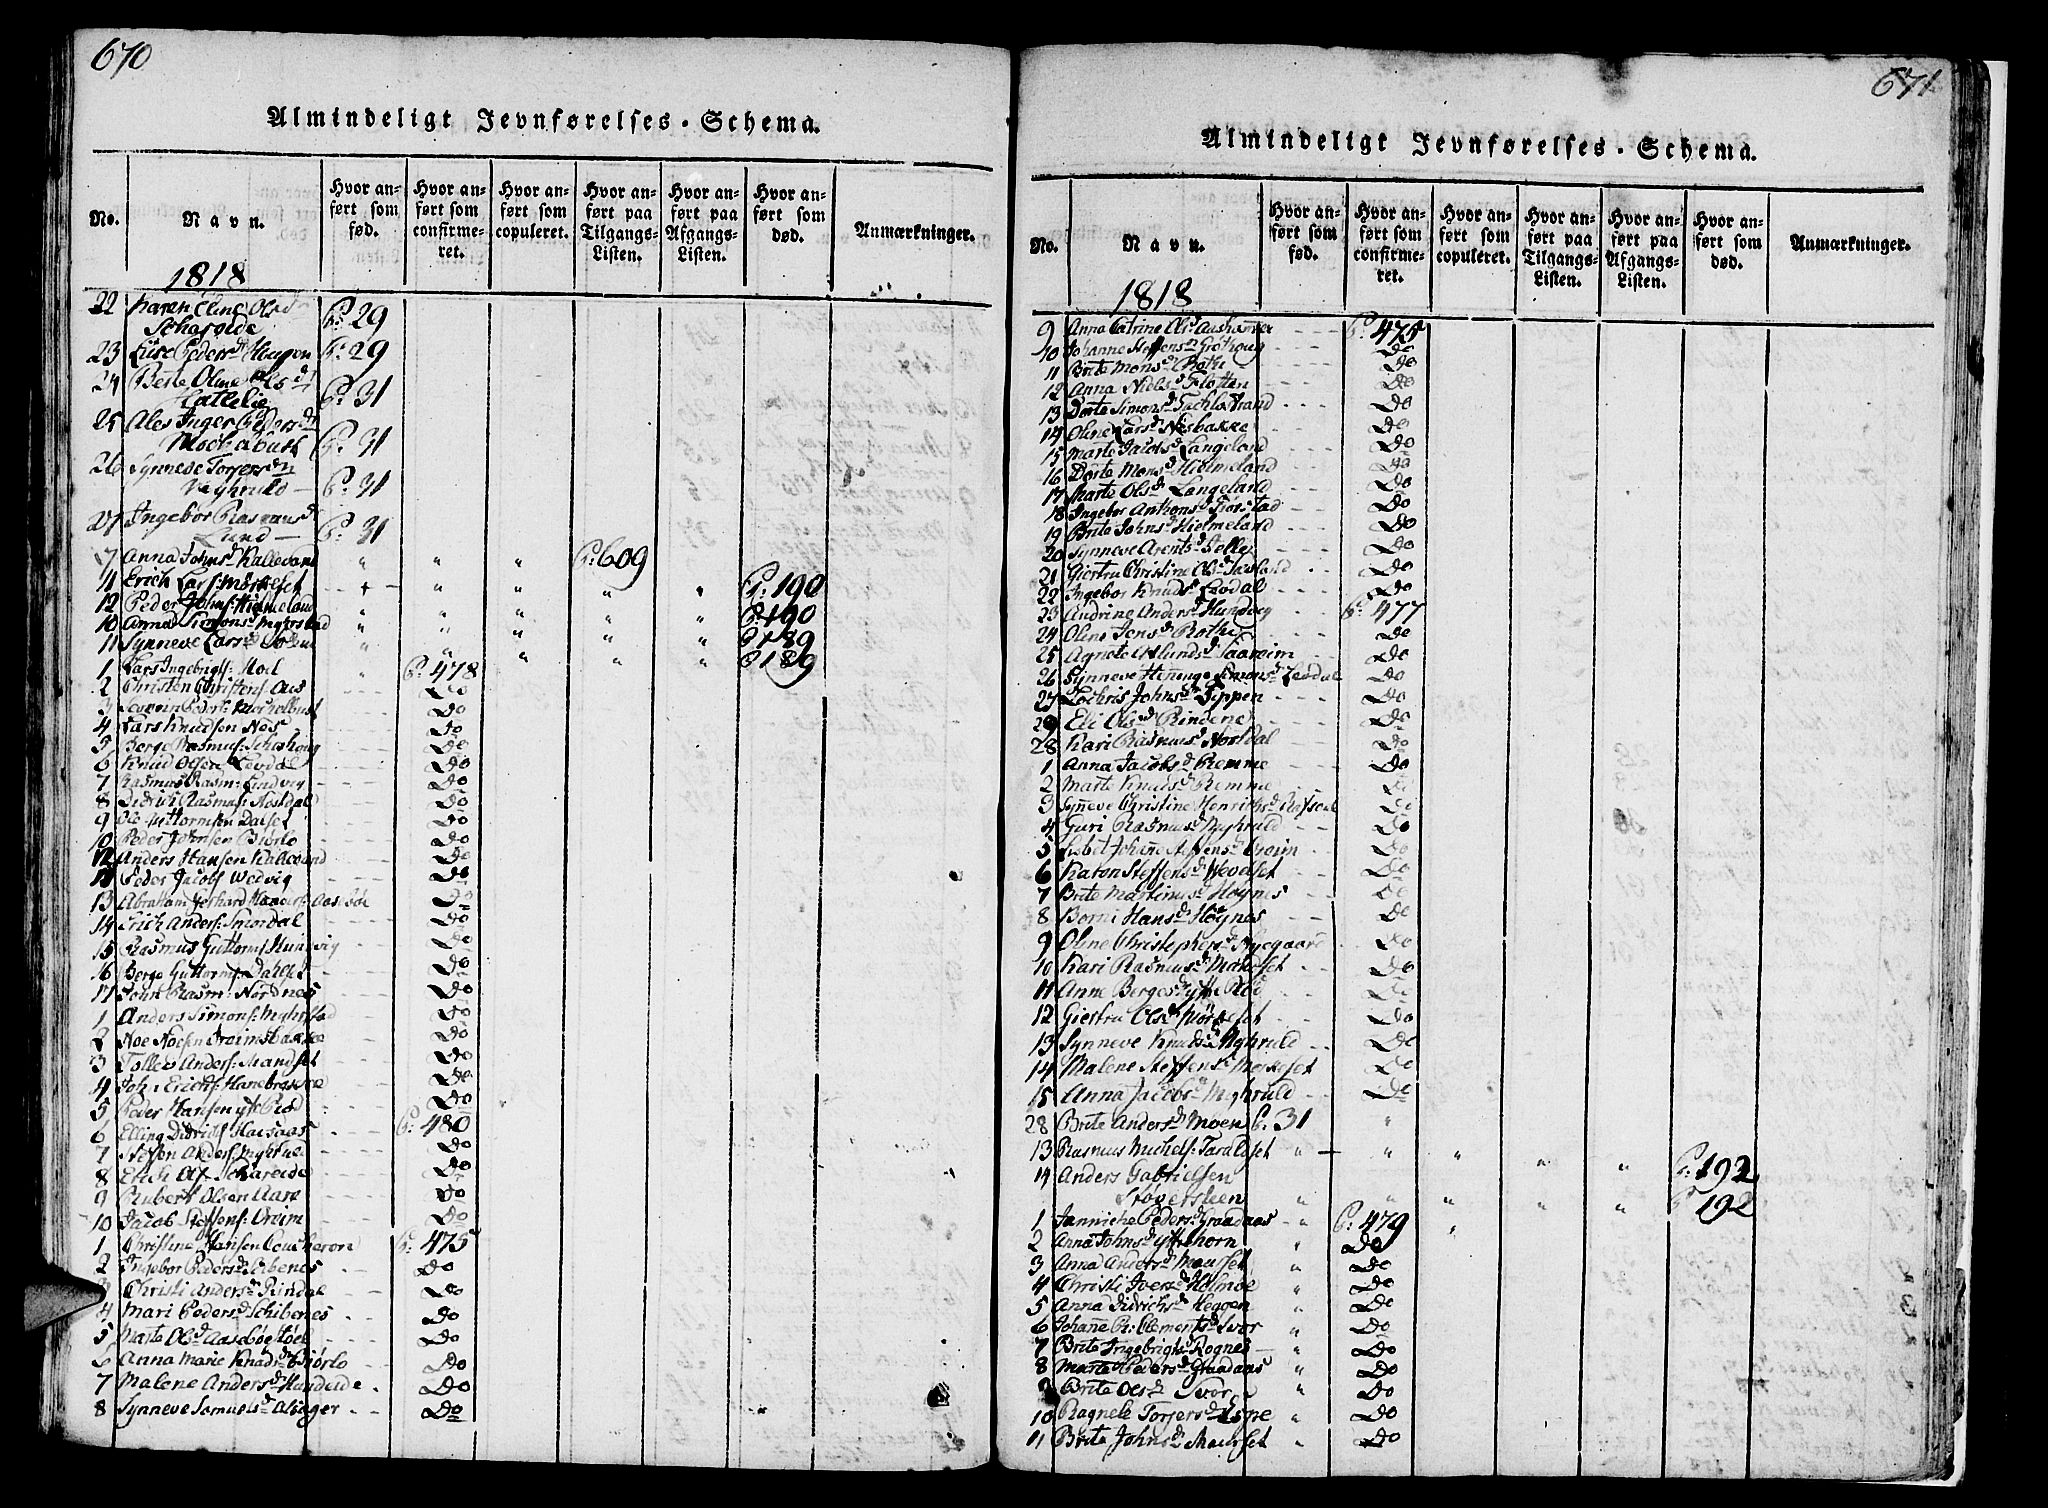 670
Almindeligt Jevnførelses-Schema.
No.
Navn.
Hvor anført som fød.
Hvor anført som confirmeret.
Hvor anført som copuleret.
Hvor anført paa Tilgangs-Listen.
Hvor anført paa Afgangs-Listen.
Hvor anført som død.
Anmærkninger.
1818
22 Karen Eline Olsd
P: 29
23 Lise Peders d Hougen P: 29
24 Berte Oline Ols d
P: 31
25 Ales Inger Peders d
P: 31
26 Synneve Torjers d
Myhruld — P: 31
27 Ingebor Rasmus d
Lund — P: 31
7 Anna Johns d Kallevand " " " P: 609
11 Erich Lars: Mørkeset " " " " " P: 190
12 Peder Johns: Hielmeland " " " " " P: 190
10 Anna Simons d Myhrstad " " " " " P: 189
11 Synneve Lars d " " " " " P: 189
1 Lars Ingebrigts: Moel " P: 478
2 Christen Christens: Aas Do
3 Do
4 Lars Knudsen Nes Do
5 Berge Rasmus: Do
6 Knud Olsen Levdal Do
7 Rasmus Rasm: Lindvig Do
8 Didrich Rasmus: Nosdal Do
9 Ole Guttormsen Dalset Do
10 Peder Johnsen Biørlo Do
12 Anders Hansen Kallevand Do
11 Peder Jacobs Wedvig Do
13 Abraham Gerhard Do
14 Erich Anders: Smørdal Do
15 Rasmus Guttorms: Hundvig Do
16 Berge Guttorms: Dalset Do
17 John Rasm: Nordnes Do
1 Anders Simons: Myhrstad Do
2 Noe Noesen Do
3 Tollef Anders: Do
4 John Erichs: Hanebrekke Do
5 Peder Hansen ytt Rød Do
6 Elling Didrichs: P: 480
7 Steffen Anders: Myhruld Do
8 Erich Ols: Do
9 Rubert Olsen Aare Do
10 Jacob Steffens: Ytreim Do
1 Christine Hansen Coucheron P: 475
2 Ingebor Peders d Schibenes Do
3 Christi Anders d Rindal Do
4 Mari Peders d Schibenes Do
5 Marte Ols d Aasebøestøel Do
6 Anna Marie Knuds d Biørlo Do
7 Malene Anders d Do
8 Synneve Samuels d Do
671
Almindeligt Jevnførelses-Schema.
No.
Navn.
Hvor anført som fød.
Hvor anført som confirmeret.
Hvor anført som copuleret.
Hvor anført paa Tilgangs-Listen.
Hvor anført paa Afgangs-Listen.
Hvor anført som død.
Anmærkninger.
1818
9 Anna Catrine Ols d P: 475
10 Johanne Steffens d Do
11 Brite Mons d Rothi Do
12 Anna Niels d Flotten Do
13 Dorte Simons d Do
14 Oline Lars d Nesbakke Do
15 Marte Jacobs d Langeland Do
16 Dorte Mons d Hielmeland Do
17 Marte Ols d Langeland Do
18 Ingebor Anthons d Do
19 Brite Johns d Hielmeland Do
20 Synneve Arents d Do
21 Giertru Christine Ols d Do
22 Ingebor Knuds d Levdal Do
23 Andrine Anders d Hundvig P: 477
24 Oline Jens d Rothi Do
25 Agnete d Taareim Do
26 Synneve Simons d Levdal Do
27 Johns d Tippen Do
29 Eli Ols d Rindene Do
28 Kari Rasmus d Nosdal Do
1 Anna Jacobs d Remme Do
2 Marte Knuds d Remme Do
3 Synneve Christine Henrichs d Do
4 Guri Rasmus d Myhruld Do
5 Lisbet Johanne Steffens d Do
6 Karen Steffens d Do
7 Brite Martinus d Høynes Do
8 Børni Hans d Høynes Do
9 Oline Christephers d Nygaard Do
10 Kari Rasmus d Do
11 Anne Berges d ytt Rød Do
12 Giertru Ols d Mørkeset Do
13 Synneve Knuds d Myhruld Do
14 Malene Steffens d Mørkeset Do
15 Anna Jacobs d Myhruld Do
28 Brite Anders d Moen P: 31 "
13 Rasmus Michels: Taraldset " " " " " P: 192
14 Anders Gabrielsen
Støversteen " " " " " P 192
1 Jannicke Peders d Graadaas " P: 479 "
2 Anna Johns d ytt Horn " Do
3 Anna Anders d " Do
4 Christi Ivers d Holmøe " Do
5 Anna Didrichs d Heggen " Do
6 Johanne P: Clements d Svor " Do
7 Brite Ingebrigts d Rognes " Do
8 Marte Peders d Graadaas " Do
9 Brite Ols d Svor " Do
10 Ragnele Torjers d Espe " Do
11 Brite Johns d " Do